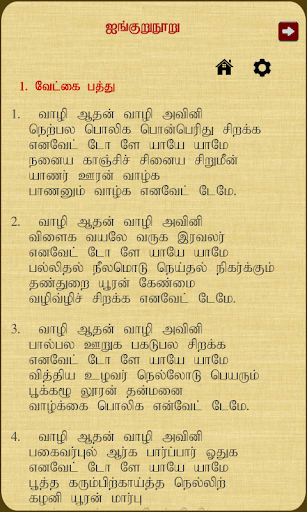 ஐங்குறுநூறு
1. வேட்கை பத்து
1. வாழி ஆதன் வாழி அவினி
நெற்பல பொலிக பொன்பெரிது சிறக்க
எனவேட் டோ ளே யாயே யாமே
நனைய காஞ்சிச் சினைய சிறுமீன்
யாணர் ஊரன் வாழ்க
பாணனும் வாழ்க எனவேட் டேமே.
2. வாழி ஆதன் வாழி அவினி
விளைக வயலே வருக இரவலர்
எனவேட் டோ ளே யாயே யாமே
பல்லிதல் நீலமொடு நெய்தல் நிகர்க்கும்
தண்துறை யூரன் கேண்மை
வழிவழிச் சிறக்க எனவேட் டேமே.
3. வாழி ஆதன் வாழி அவினி
பால்பல ஊறுக பகடுபல சிறக்க
எனவேட் டோ ளே யாயே யாமே
வித்திய உழவர் நெல்லோடு பெயரும்
பூக்கழு லூரன் தன்மனை
வாழ்க்கை பொலிக என்வேட் டேமே.
4. வாழி ஆதன் வாழி அவினி
பகைவர்புல் ஆர்க பார்ப்பார் ஓதுக
எனவேட் டோ ளே யாயே யாமே
பூத்த கரும்பிற்காய்த்த நெல்லிற்
கழனி யூரன் மார்பு